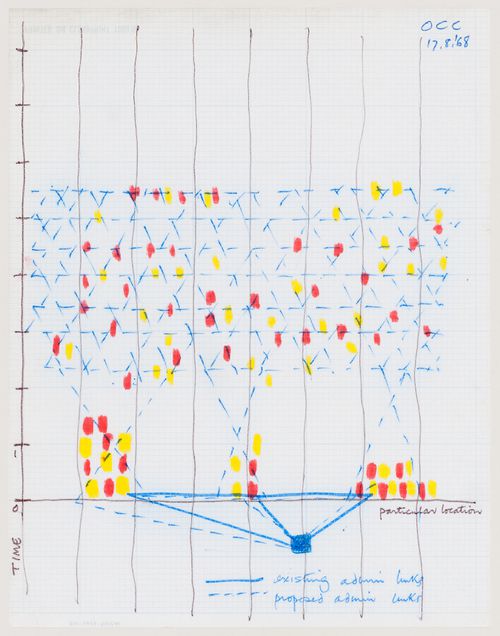 OCC
17.8.'68
particular location
0
TIME
existing admin links
proposed admin links